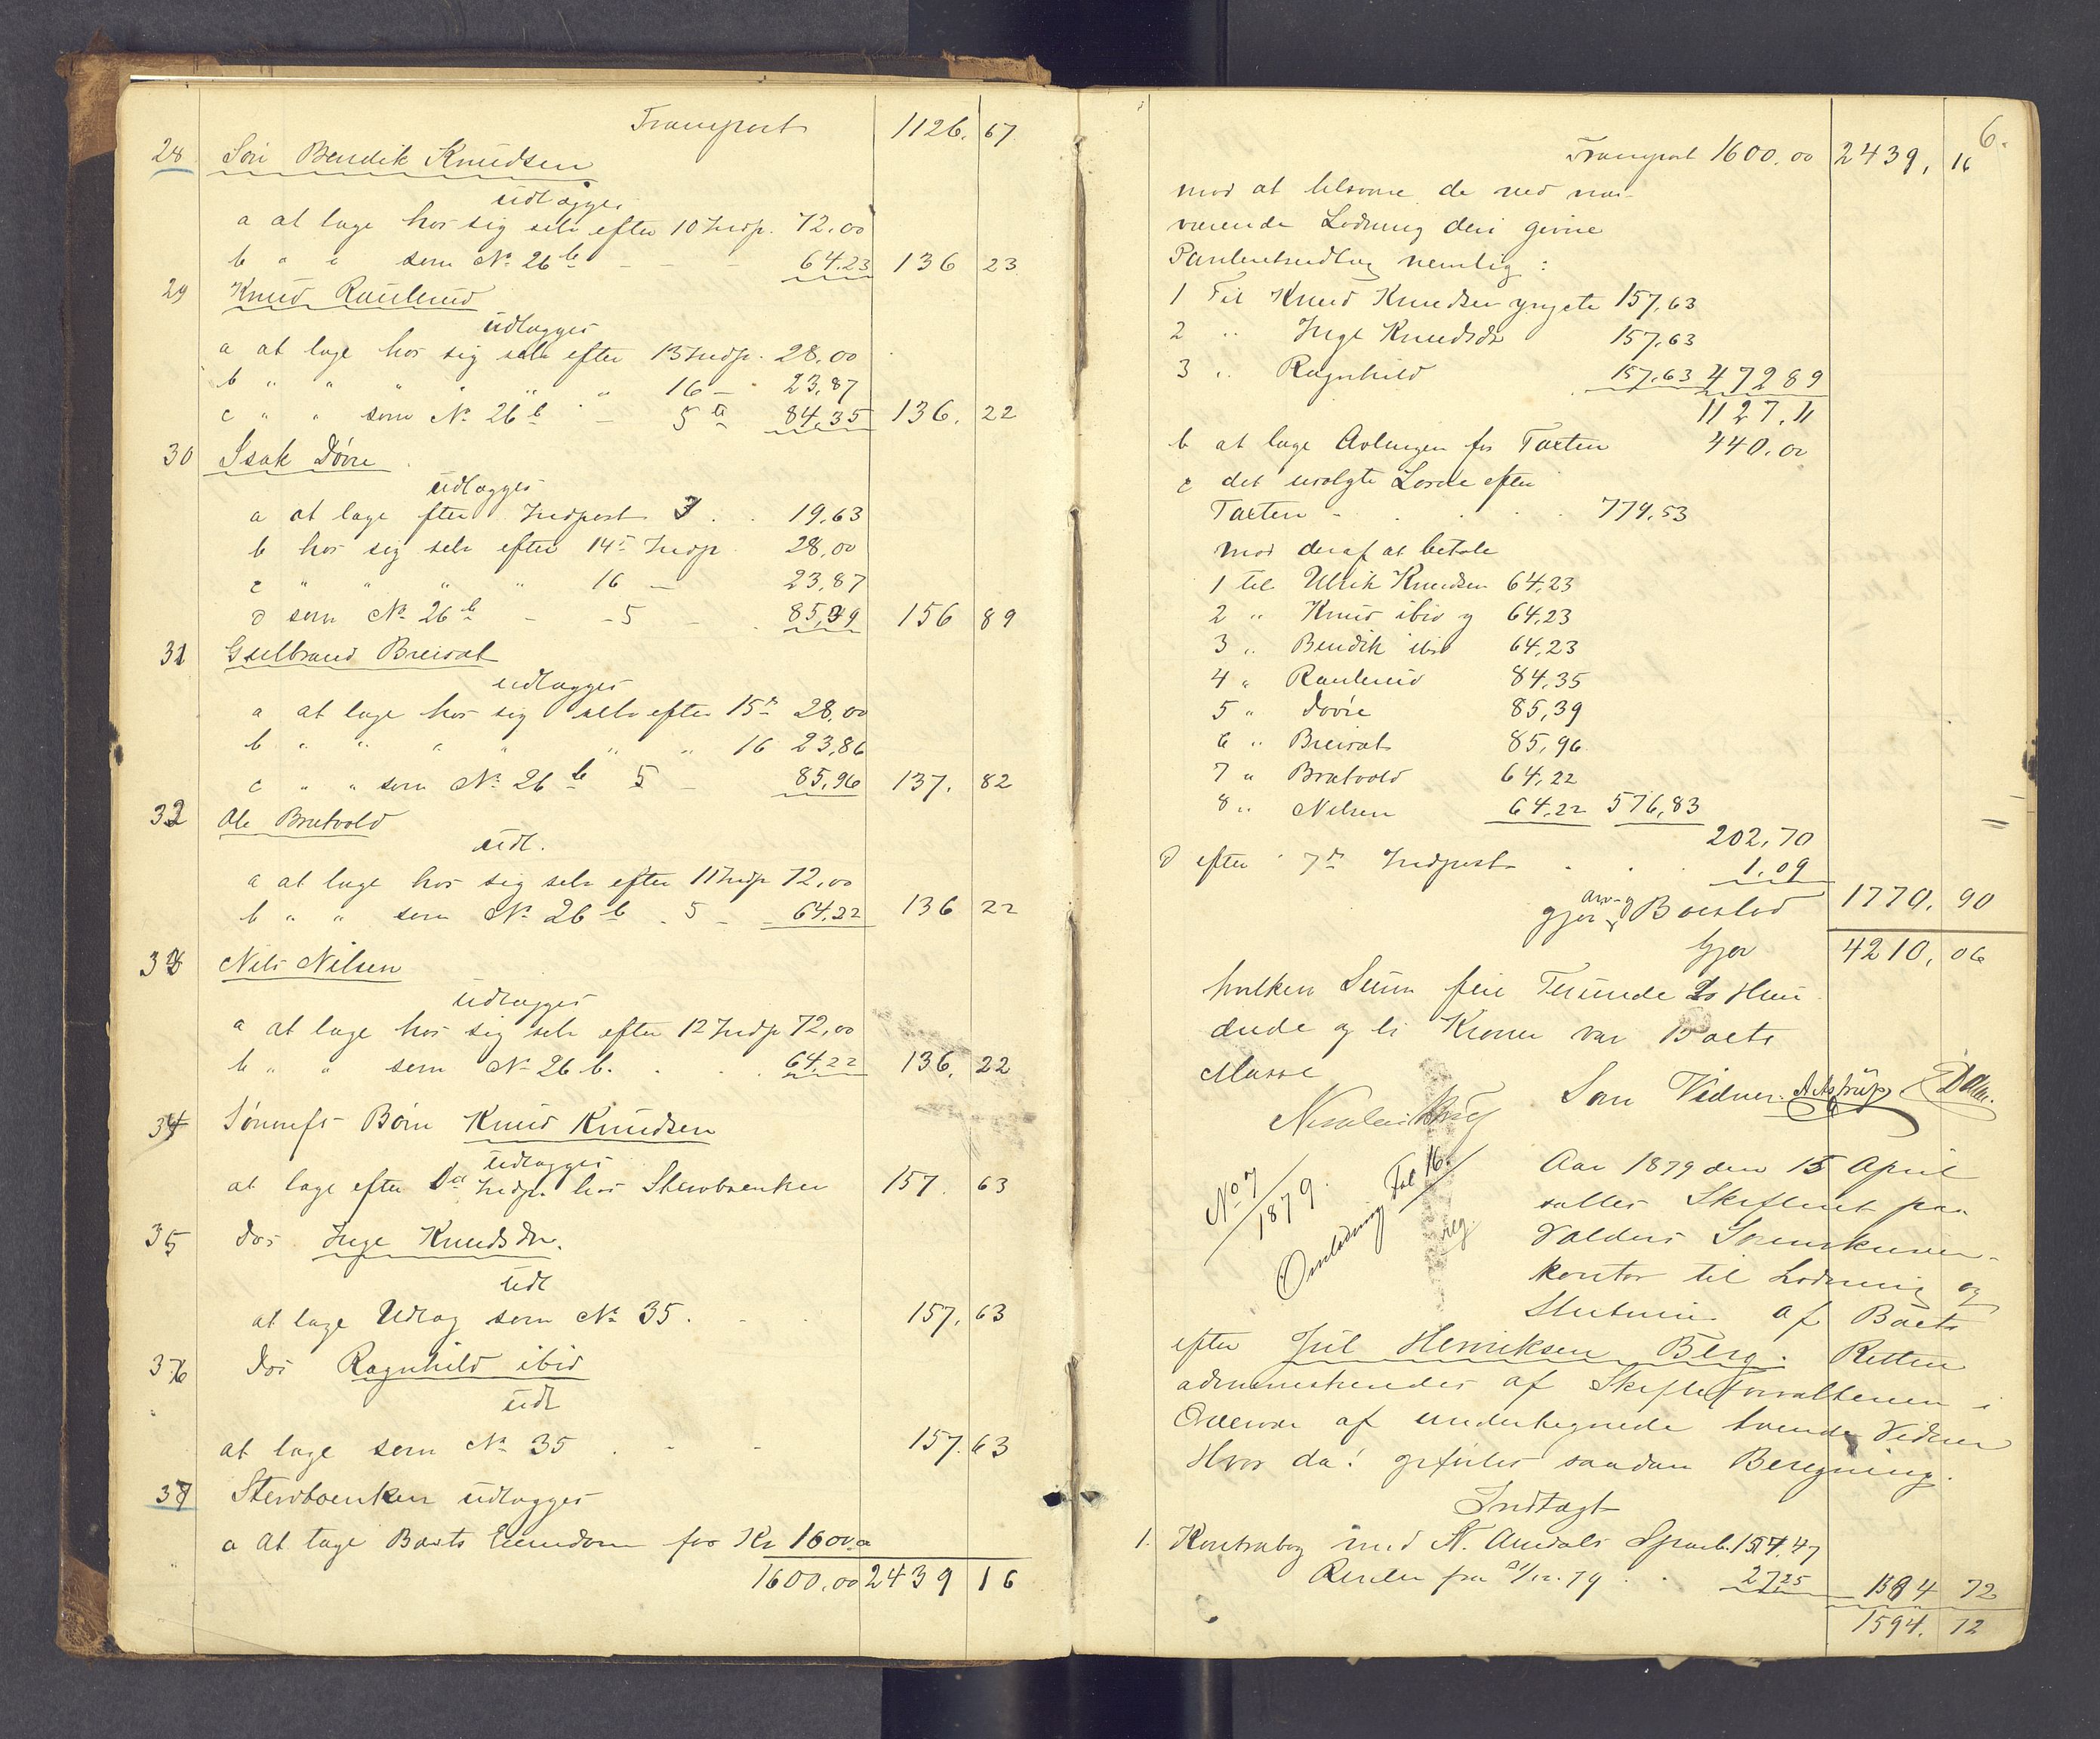 Transport 1126. 67
28 Søn Bendik Knudsen
udlægges
a at tage hos sig selv efter 10 Indp. 72,00
b " " som No 26 b - - - 64,23 136 23
29 Knud Raulund
udlægges
a at tage hos sig selv efter 13 Indp. 28,00
b " " " " " " 16 - 23,87
c " " som No 26 b - 5 a 84,35 136, 22
30 Isak Dovre
udlægges
a at tage efter Indpost 3 . . 19,63
b hos sig selv efter 14de Indp 28,00
c " " " " 16 - 23,87
d som No 26 b - - 5 - 85,39 156 89
31 Gulbrand Breivat
udlægges
a at tage hos sig selv efter 15de 28,00
b " " " " " " 16 23,86
c " " som No 26 b 5 - 85,96 137, 82
32 Ole Bratvold
udl.
a at tage hos sig selv efter 11 Indp 72,00
b " " som No 26 b - 5 - - 64,22 136 22
33 Nils Nilsen
udlægges
a at tage hos sig selv efter 12 Indp 72,00
b " " som No 26 b. . . . 64,22 136, 22
34 Sønnens Børn Knud Knudsen
udlægges
at tage efter Indp. hos Stervboenken 157. 63
35 Dos Inge Knudsdr.
udl
at tage Udlæg som No 35. - . 157, 63
36 Dos Ragnhild ibid
udl
at tage som No 35 . - - 157. 63
37 Stervboenken udlægges
a At tage Boets Eiendom for Kr 1600.00
1600,00 2439 16
6.
Transport 1600.00 2439, 16
mod at tilsvare de ved nær-
værende Lodning deri givne
Panteudlæg nemlig:
1 Til Knud Knudsen yngste 157,63
2 " Inge Knudsdr 157,63
3 " Ragnhild 157,63 472 89
1127,11
b at tage Avlingen for Taxten 440,00
c det usolgte Løsøre efter
Taxten - . . . . 779,53
mod deraf at betale
1 til Ulrik Knudsen 64,23
2 " Knud ibid y 64,23
3 " Bendik ibid 64,23
4 " Raulund 84,35
5 " Dovre 85,39
6 " Breivat 85,96
7 " Bratvold 64,22
8 " Nilsen 64,22 576,83
202,70
d efter 7de Indpost . . . 1,09
gjør Boeslod 1770, 90
Gjør 4210, 06
hvilken Sum fire Tusinde To Hun
drede og ti Kroner var Boets
Masse
Som Vidner.
Aar 1879 den 15 April
sattes Skifteret paa
Valders Sorenskriver-
kontor til Lodning og
Slutning af Boets
No 7
1879.
Omlodning Fol 16.
efter Jul Henriksen Berg. Retten
administreredes af Skifteforvalteren i
Overvær af undertegnede tvende Vidner
Hvor da! opførtes saadan Beregning.
Indtægt
1. Kontrabog med N. Aurdals Sparb. 1557,47
Renter fra 31/12.79 . . 27,25 1584 72
1594. 72